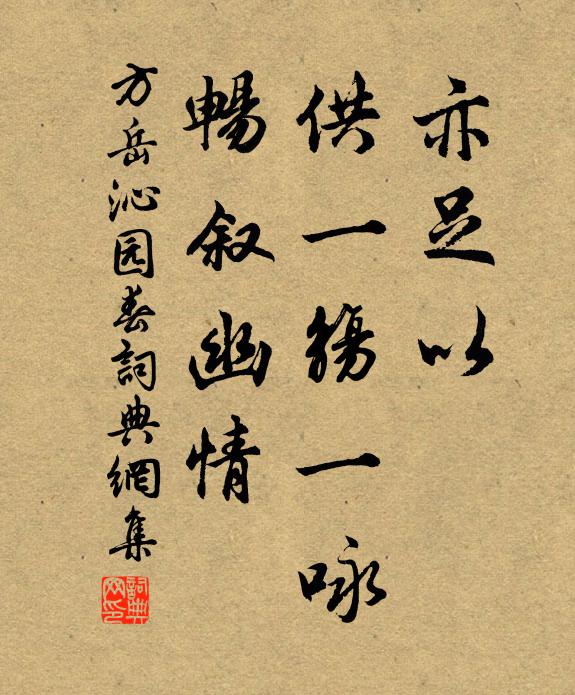 亦足以
供一觴一咏
暢叙幽情
方岳沁园春詞典網集
詞典网印